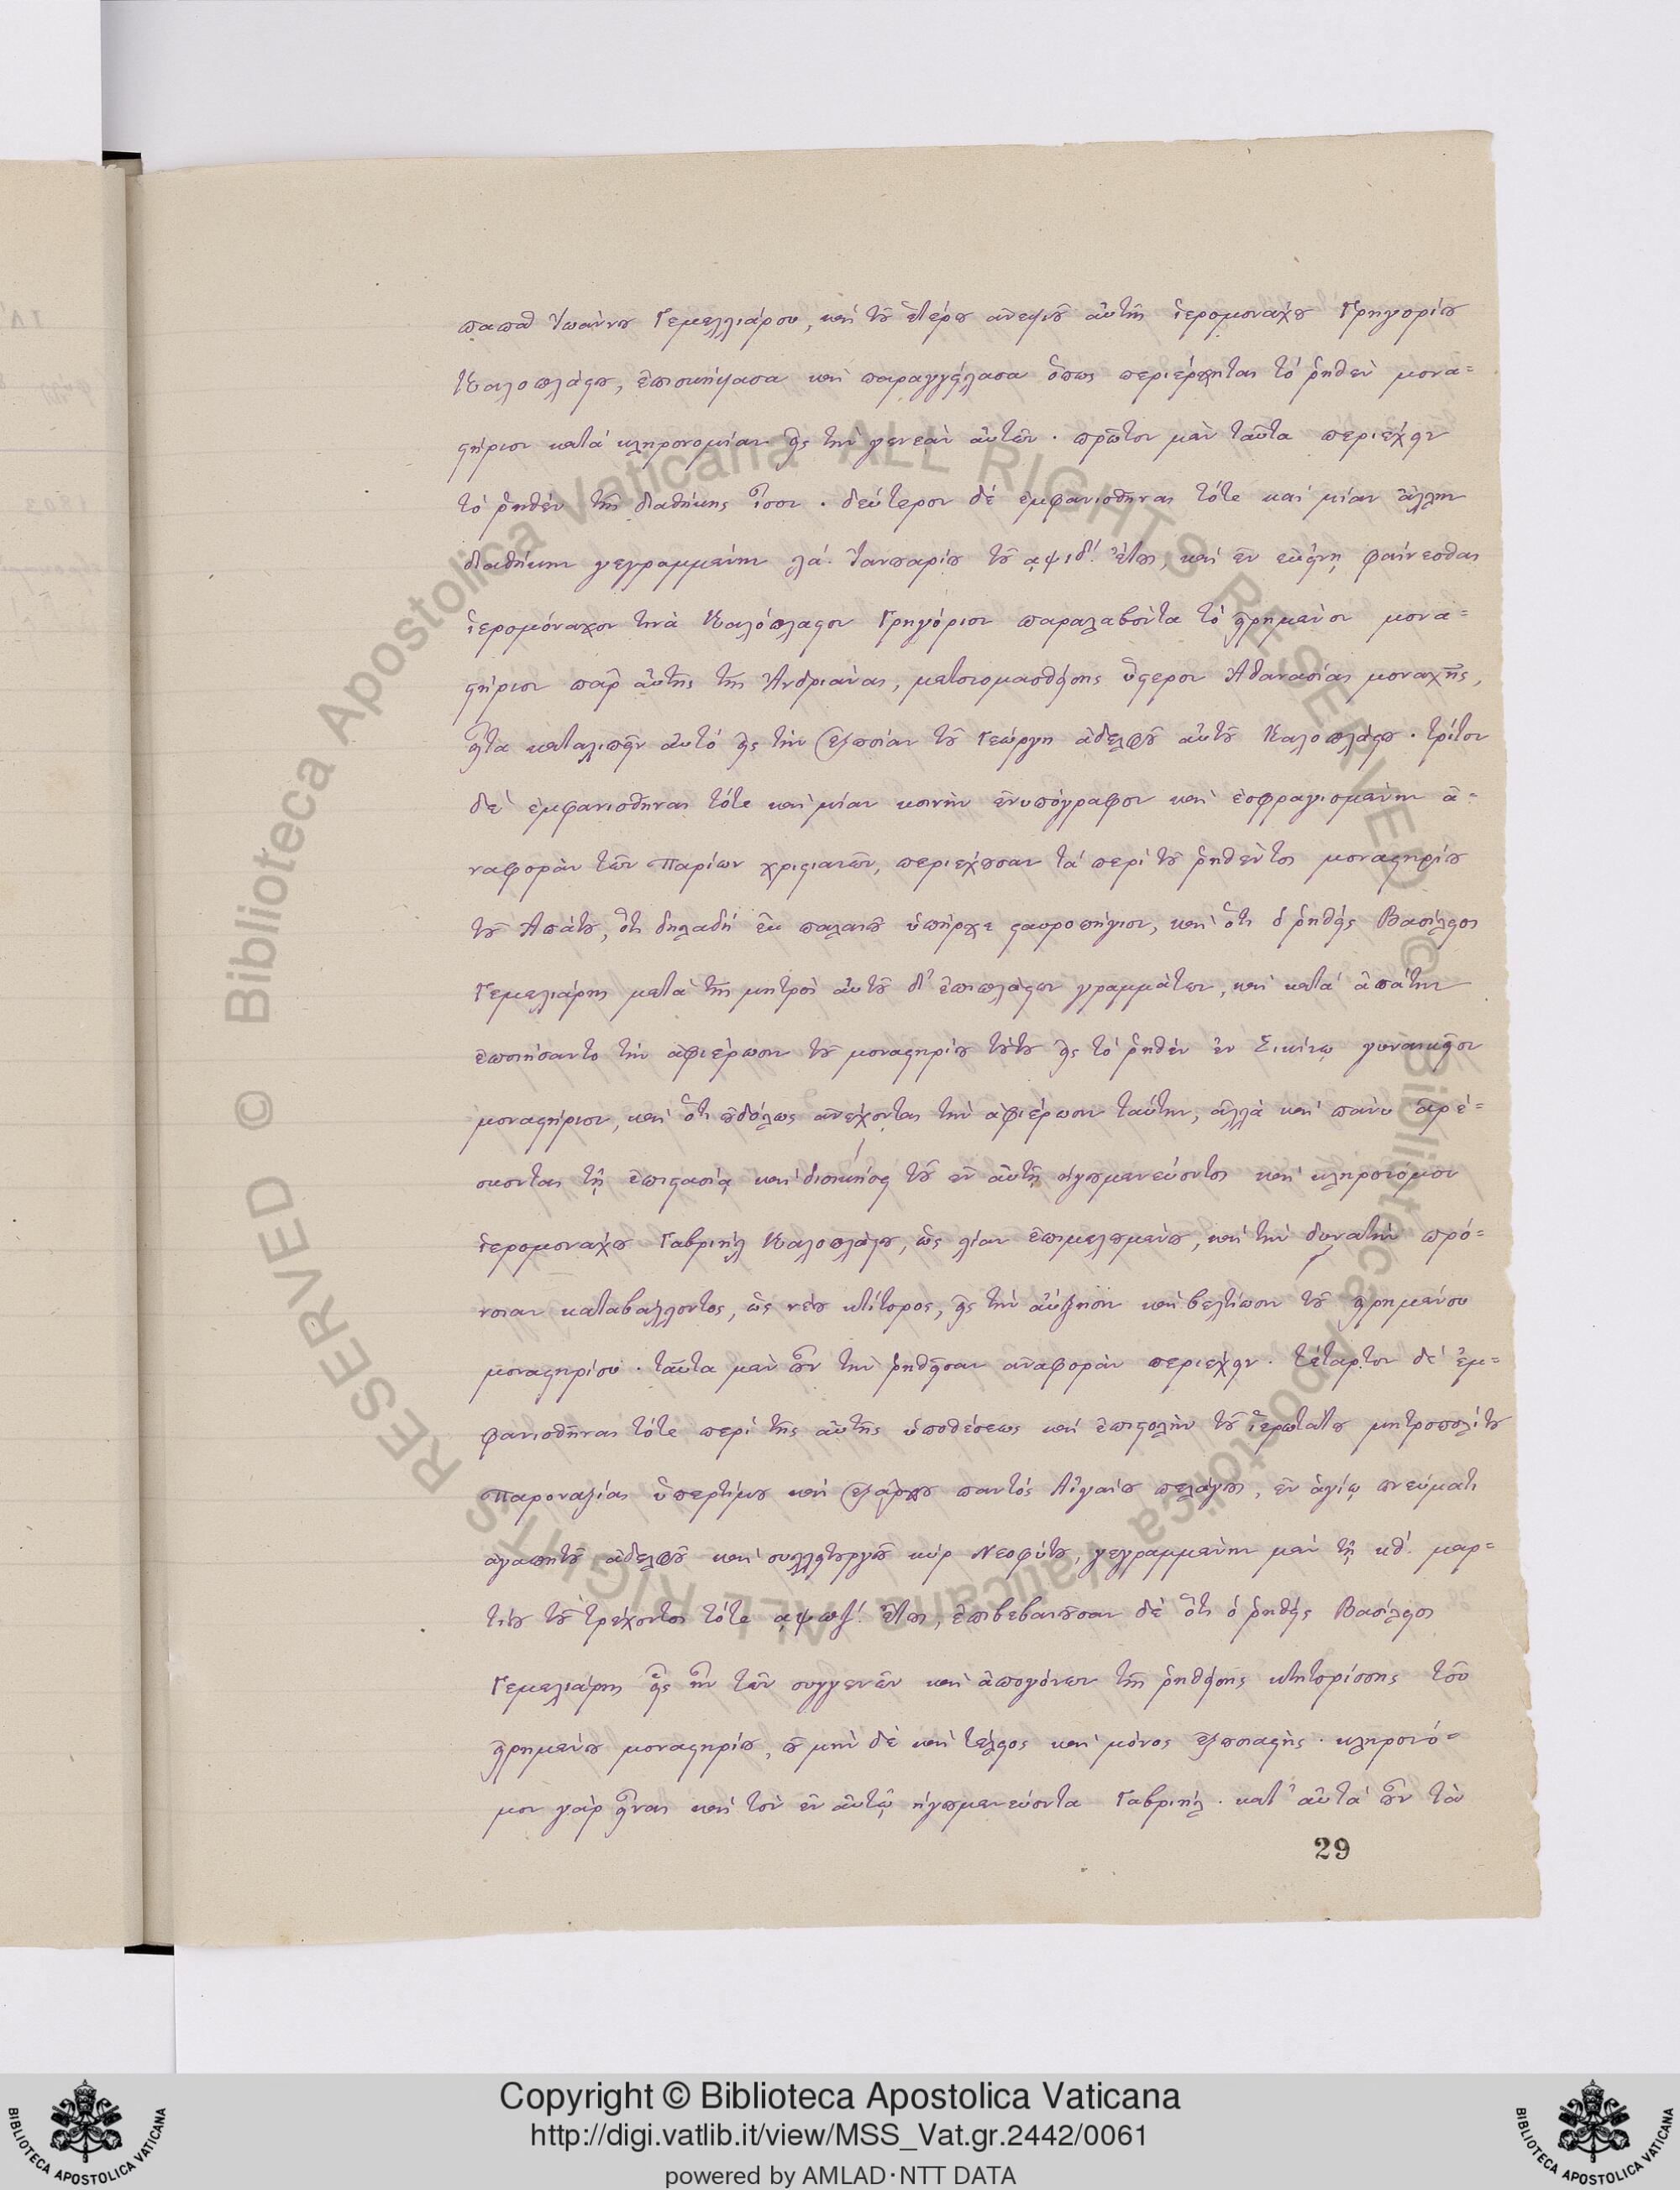 παπᾶ Ἰωάννου Γεμελλιάρου, καὶ τοῦ ἑτέρου ἀνεψιοῦ αὐτῆς ἱερομονάχου Γρηγορίου
Καλοπλάστου, ἐπισκήψασα καὶ παραγγείλασα ὅπως περιέρχηται τὸ ῥηθὲν μονα=
στήριον κατὰ κληρονομίαν εἰς τὴν γενεὰν αὐτῶν · πρῶτον μὲν ταῦτα περιέχειν
τὸ ῥηθὲν τῆς διαθήκης ἴσον · δεύτερον δὲ ἐμφανισθῆναι τότε καὶ μίαν ἄλλην
διαθήκην γεγραμμένην λα΄. Ἰανουαρίου τοῦ ͵αψιδ΄. ἔτους, καὶ ἐν ἐκείνῃ φαίνεσθαι
ἱερομόναχον τινὰ Καλόπλαστον Γρηγόριον παραλαβόντα τὸ εἰρημένον μονα=
στήριον παρ' αὐτῆς τῆς Ἀνδριάνας, μετονομασθείσης ὕστερον Ἀθανασίας μοναχῆς,
εἶτα καταλιπεῖν αὐτὸ εἰς τὴν ἐξουσίαν τοῦ Γεώργη ἀδελφοῦ αὐτοῦ Καλοπλάστου · τρίτον
δὲ ἐμφανισθῆναι τότε καὶ μίαν κοινὴν ἐνυπόγραφον καὶ ἐσφραγισμένην ἀ=
ναφορὰν τῶν Παρίων χριστιανῶν, περιέχουσαν τὰ περὶ τοῦ ῥηθέντος μοναστηρίου
τοῦ Ἀπάτου, ὅτι δηλαδὴ ἐκ παλαιοῦ ὑπῆρχε σταυροπήγιον, καὶ ὅτι ὁ ῥηθεὶς Βασίλειος
Γεμελιάρης μετὰ τῆς μητρὸς αὐτοῦ δι' ἐπιπλάστων γραμμάτων, καὶ κατὰ ἀπάτην
ἐποιήσαντο τὴν ἀφιέρωσιν τοῦ μοναστηρίου τούτου εἰς τὸ ῥηθὲν ἐν Σικίνῳ γυναικεῖον
μοναστήριον, καὶ ὅτι οὐδόλως ἀνέχονται τὴν ἀφιέρωσιν ταύτην, ἀλλὰ καὶ πάνυ ἀρέ=
σκονται τῇ ἐπιστασίᾳ καὶ διοικήσει τοῦ ἐν αὐτῇ ἡγουμενεύοντος καὶ κληρονόμου
ἱερομονάχου Γαβριὴλ Καλοπλάστου, ὡς λίαν ἐπιμελουμένου, καὶ τὴν δυνατὴν πρό=
νοιαν καταβάλλοντος, ὡς νέου κτίτορος, εἰς τὴν αὔξησιν καὶ βελτίωσιν τοῦ εἰρημένου
μοναστηρίου · ταῦτα μὲν οὖν τὴν ῥηθεῖσαν ἀναφορὰν περιέχειν · τέταρτον δὲ ἐμ=
φανισθῆναι τότε περὶ τῆς αὐτῆς ὑποθέσεως καὶ ἐπιστολὴν τοῦ ἱερωτάτου μητροπολίτου
Παροναξίας ὑπερτίμου καὶ ἐξάρχου παντὸς Αἰγαίου πελάγους, ἐν ἁγίῳ πνεύματι
ἀγαπητοῦ ἀδελφοῦ καὶ συλλειτουργοῦ κὺρ Νεοφύτου, γεγραμμένην μὲν τῇ κθ΄. μαρ=
τίου τοῦ τρέχοντος τότε ͵αψπζ΄. ἔτους, ἐπιβεβαιοῦσαν δὲ ὅτι ὁ ῥηθεὶς Βασίλειος
Γεμελιάρης εἷς ἦν τῶν συγγενῶν καὶ ἀπογόνων τῆς ῥηθείσης κτητορίσσης τοῦ
εἰρημένου μοναστηρίου, οὐ μὴν δὲ καὶ τέλειος καὶ μόνος ἐξουσιαστής · κληρονό=
μον γὰρ εἶναι καὶ τὸν ἐν αὐτῷ ἡγουμενεύοντα Γαβριήλ · κατ' αὐτὰ οὖν τὰ
29
Copyright © Biblioteca Apostolica Vaticana
http://digi.vatlib.it/view/MSS_Vat.gr.2442/0061
powered by AMLAD·NTT DATA
BIBLIOTECA APOSTOLICA VATICANA
BIBLIOTECA APOSTOLICA VATICANA